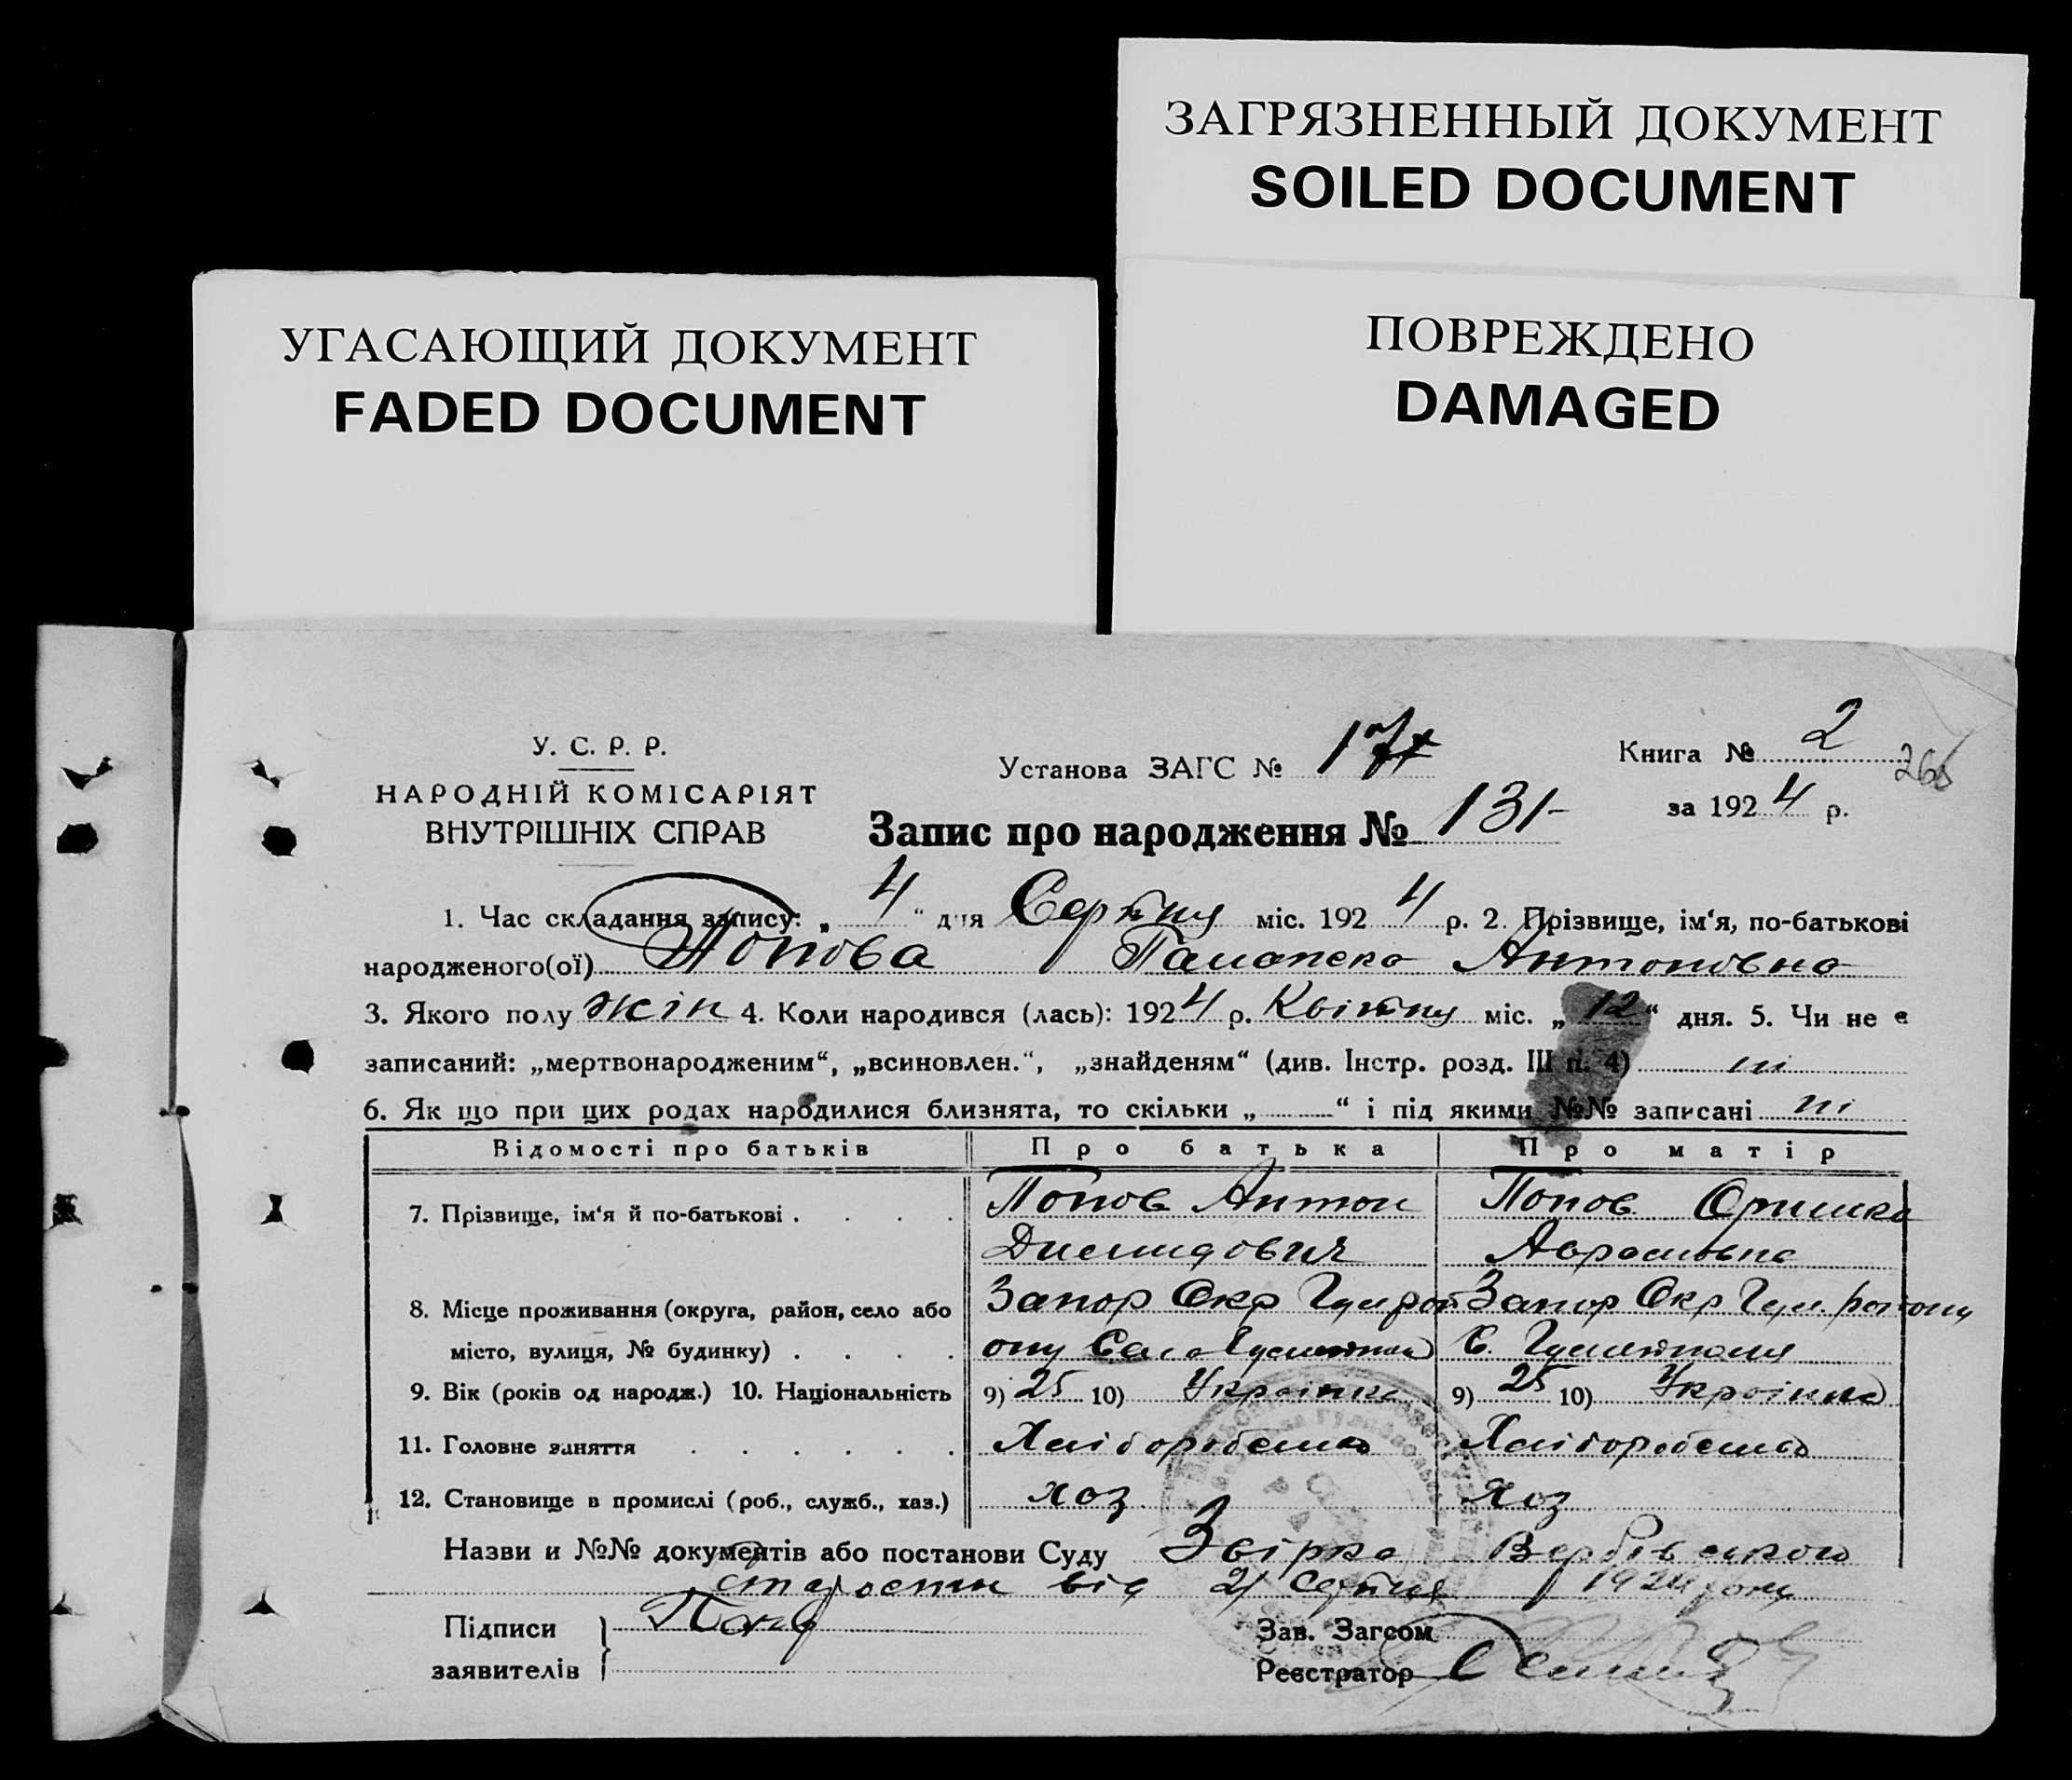 ЗАГРЯЗНЕННЫЙ ДОКУМЕНТ
SOILED DOCUMENT
УГАСАЮЩИЙ ДОКУМЕНТ
FADED DOCUMENT
ПОВРЕЖДЕНО
DAMAGED
У. С. Р. Р.
НАРОДНІЙ КОМІСАРІЯТ
ВНУТРІШНІХ СПРАВ
Установа ЗАГС №
Книга № 2
за 1924 р.
Запис про народження № 131-
1. Час складання запису: „4“ дня Серпня міс. 1924 р. 2. Прізвище, ім‘я, по-батькові
народженого(ої) Попова Антоновна
3. Якого полу жін 4. Коли народився (лась): 1924 р. Квітня міс. „12“ дня. 5. Чи не е
записаний: „мертвонародженим“, „всиновлен.“, „знайденям“ (див. Інстр. розд. III п. 4) ні
6. Як що при цих родах народилися близнята, то скільки „ “ і під якими №№ записані ні
Відомості про батьків Про батька Про матір
7. Прізвище, ім‘я й по-батькові . . . . Попов Антон Попов Оришка
8. Місце проживання (округа, район, село або Запор Окр Запор Окр
місто, вулиця, № будинку) . . . .
9. Вік (років од народж.) 10. Національність 9) 25 10) Українка 9) 25 10) Українка
11. Головне заняття . . . . . . Хліборобство Хліборобство
12. Становище в промислі (роб., служб., хаз.) хоз хоз
Назви и №№ документів або постанови Суду Вербівського
від Серпня 1924 року
Підписи
заявителів
Зав. Загсом
Реєстратор